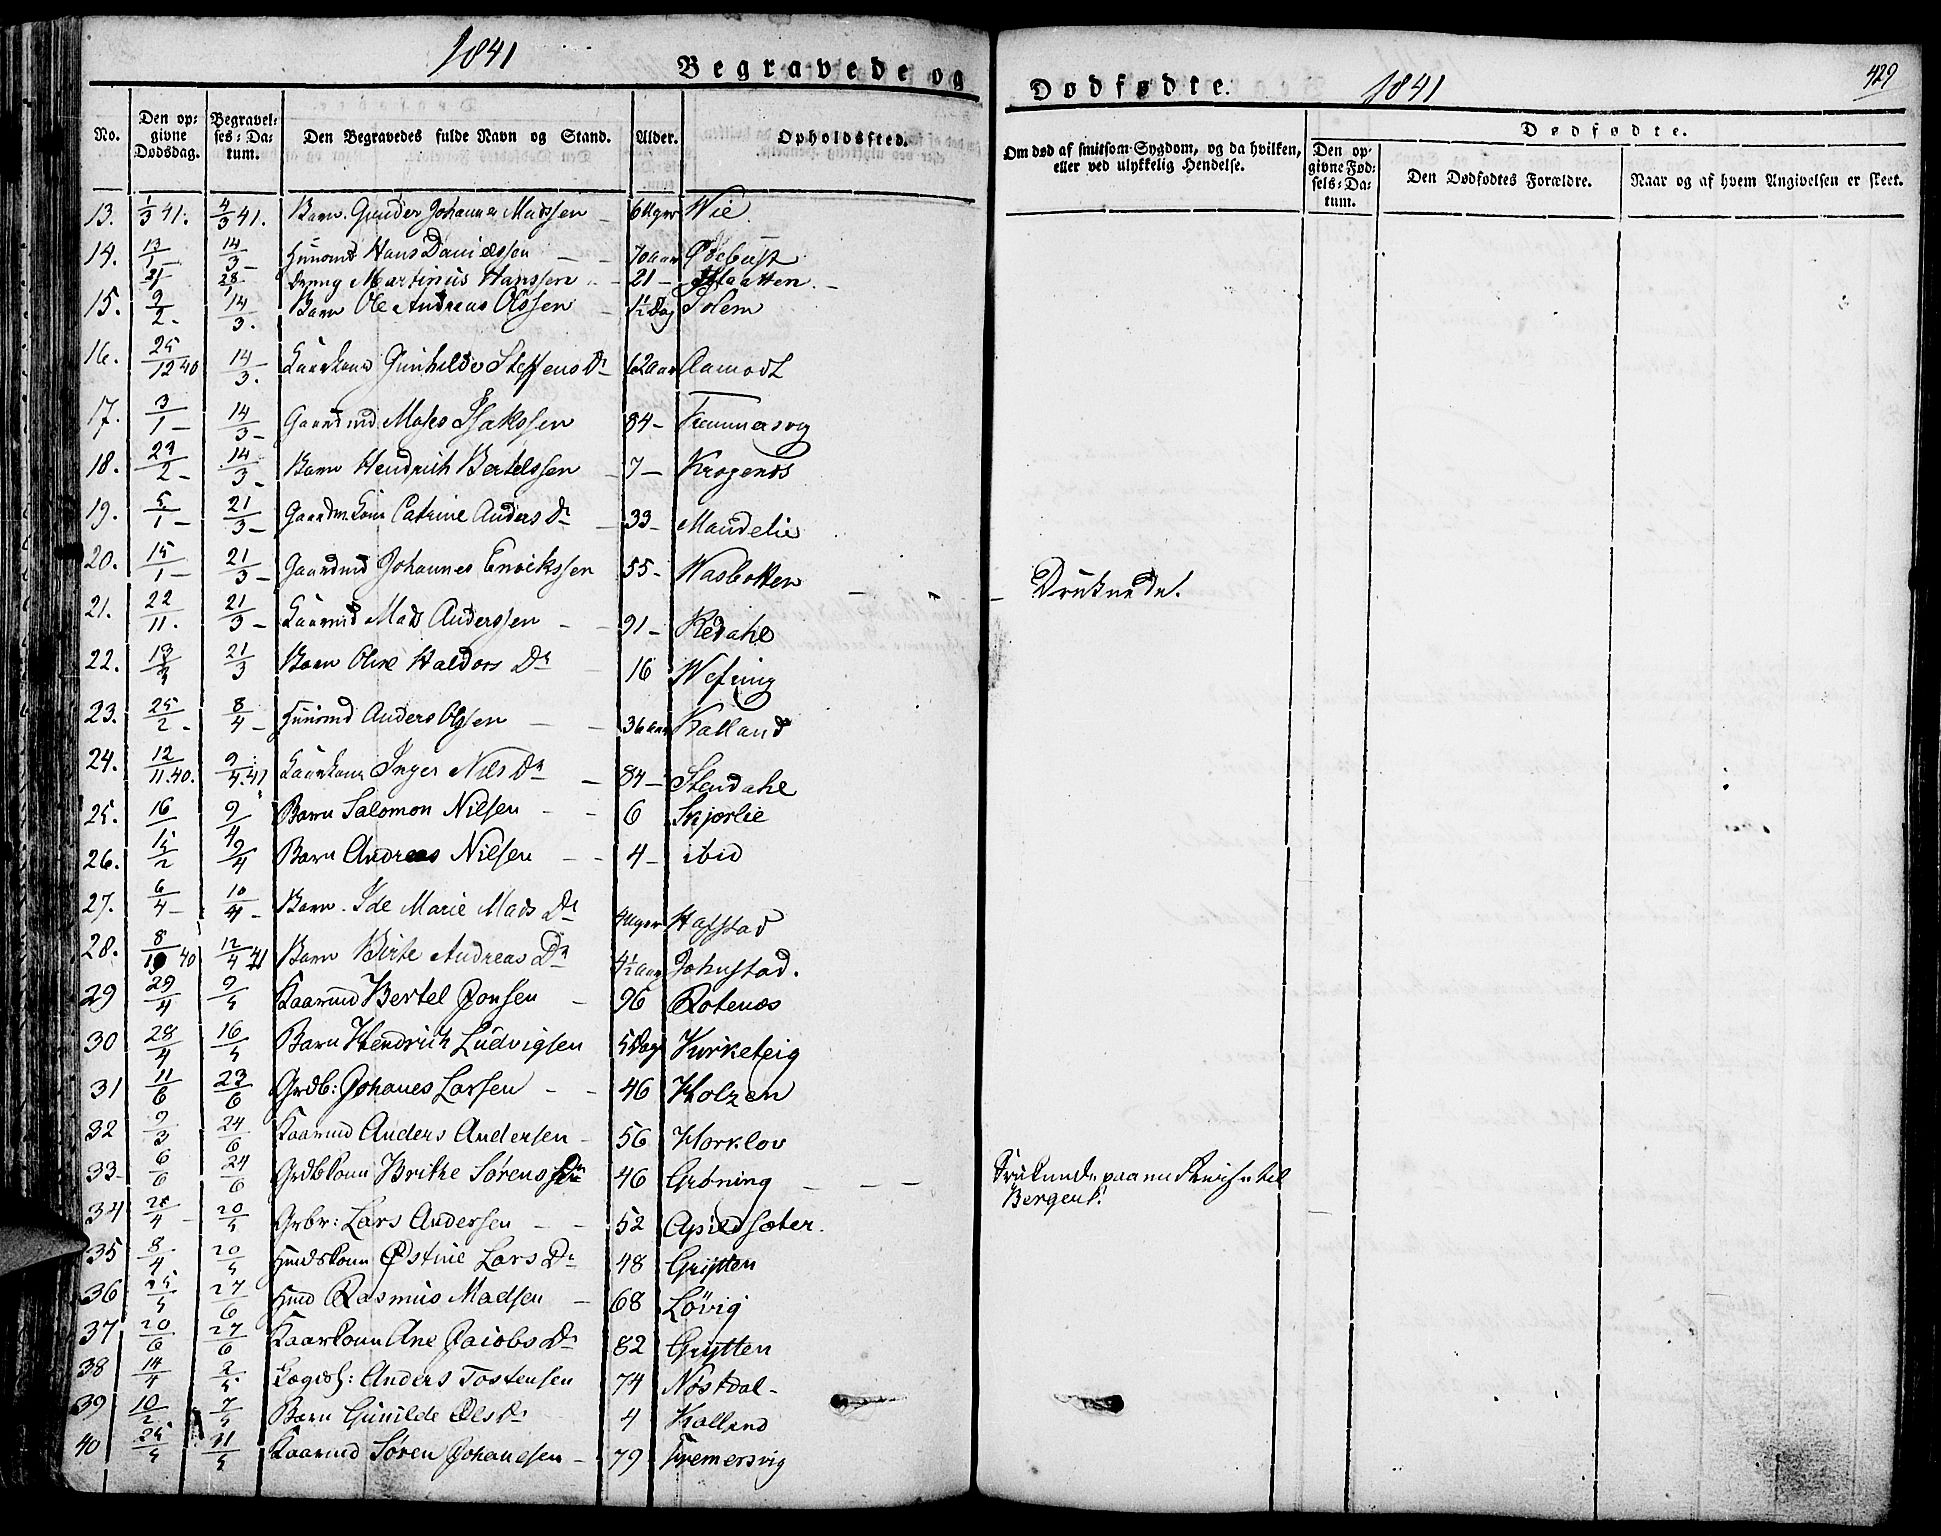 1841
Begravede og
Dødfødte.
1841
429
No.
Den opgivne Dødsdag.
Begravelses-Datum.
Den Begravedes fulde Navn og Stand.
Alder.
Opholdssted.
Om død af smitsom Sygdom, og da hvilken, eller ved ulykkelig Hendelse.
Dødfødte.
Den opgivne Fødsels-Datum.
Den Dødfødtes Forældre.
Naar og af hvem Angivelsen er skeet.
13. 1/3 41. 4/3 41. Barn Gunder Johannes Madssen 6 Uger Wie.
14. 13/1 14/3 Huusmd Hans Danielssen 70 Aar Ødebust
21/1 28 Dreng Martinius Hanssen 21 Flaatten
15. 9/2 14/3 Barn Ole Andreas Olssen 1½ Dag Solem
16. 25/12 40 14/3 Kaarkone Gunhilde Steffens Dr 62 Aar Aamodt
17. 3/1 14/3 Gaardmd Moses Isakssen 84 Tammersvig
18. 23/2 14/3 Barn Hendrich Bertelssen 7 Krogenæs
19. 5/1 21/3 Gaardm. Kone Catrine Anders Dr 33 Maudelie
20. 15/1 21/3 Gaardmd Johannes Enoikssen 55 Hasbotten Druknede!
21. 22/11 21/3 Kaarmd Mads Anderssen 91 Redahl
22. 13/3 21/3 Barn Oline Haldors Dr 16 Wefring
23. 25/2 8/4 Huusmd Anders Olssen 36 Aar Kalland
24. 12/11.40. 9/4.41 Kaarkone Inger Nils Dr 84 Stendahl
25. 16 9/4 Barn Salomon Nilsen 6 Skjørlie
26. 15/2 9/4 Barn Andreas Nilsen 4 ibid
27. 6/4 10/4 Barn Ide Marie Mads Dr 4 Uger Hafstad
28. 8/10 40 12/4 41 Barn Birte Andreas Dr 4½ Aar Johnstad.
29 29/4 9/5 Kaarmd Bertel Jonsen 96 Rotenæs
30 28/4 16/5 Barn Hendrich Ludvigsen 5 Dage Kirketeig
31 11/6 23/6 Grdb: Johanes Larsen 46 Holzen
32 9/3 24/6 Kaarmd Anders Andersen 56 Horklov
33 6/6 24/6 Grdbkone Brithe Sørens Dr 46 Grøning Druknede paa en Reise til
Bergen!
34 25/4 20/5 Grbr: Lars Andersen 52 Apildsæter.
35 8/4 20/5 Hmdskone Østine Lars Dr 48 Grijtten
36 25/5 27/6 Hmd Rasmus Madsen 68 Løvig
37 20/6 27/6 Kaarkone Ane Jacobs Dr 82 Grijtten
38 14/4 2/5 Lægds: Anders Tostensen 74 Nøstdal
39 10/2 7/5 Barn Gunilde Ols Dr 4 Kalland
40 25/5 11/5 Kaarmd Søren Johanesen 79 Fremersvig